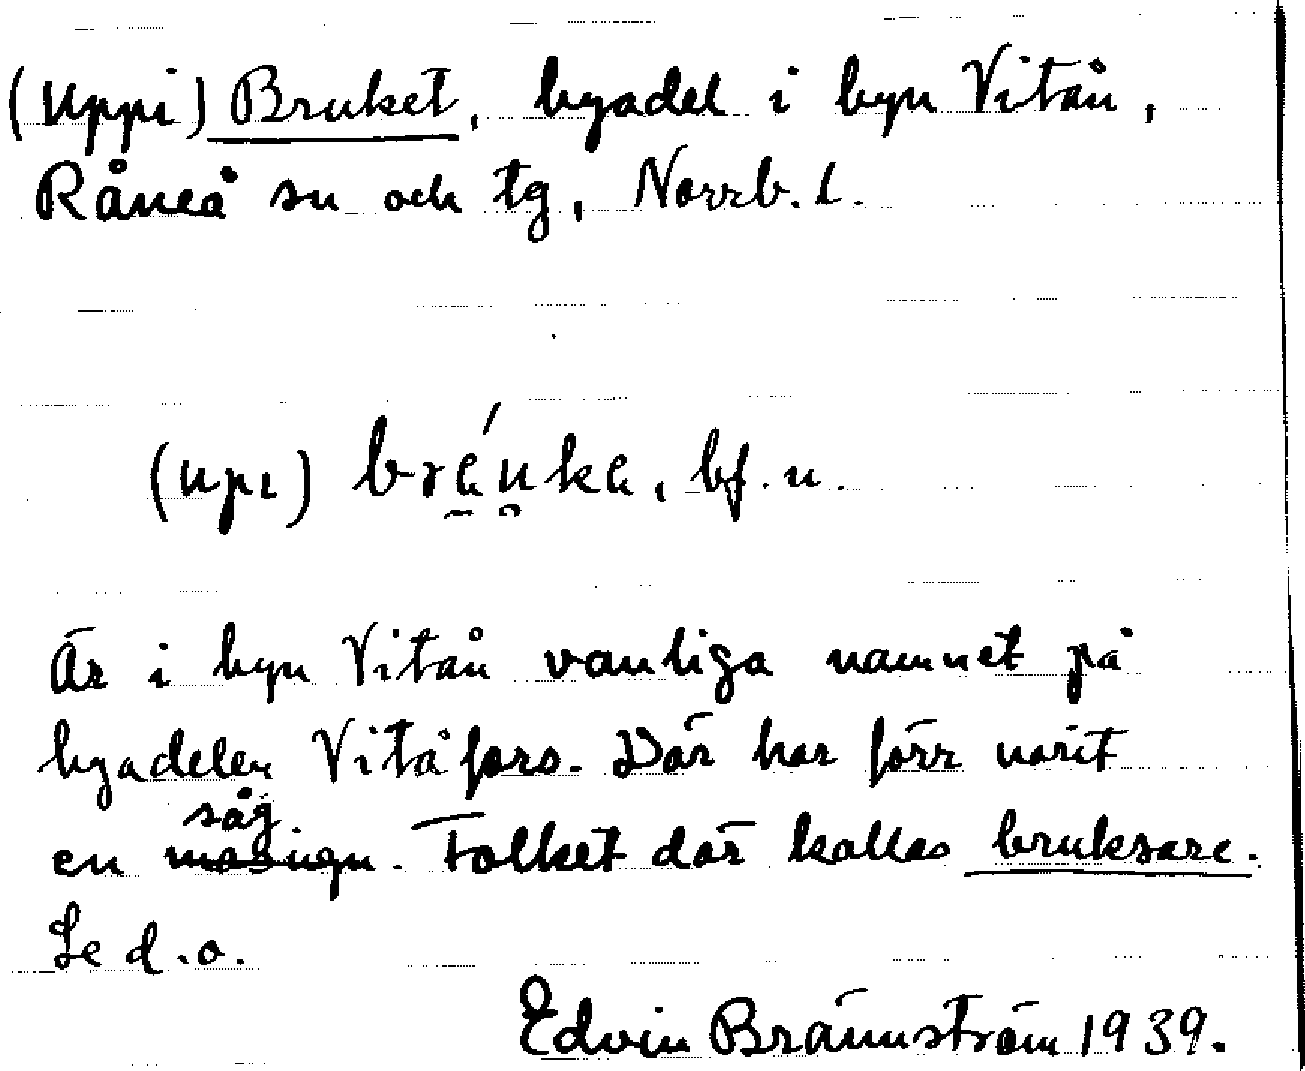 (Uppi) Bruket, byadel i byn Vitån,
Råneå sn och tg, Norrb. l.
(upi) bráuka, bf. n.
Är i byn Vitån vanliga namnet på
byadelen Vitåfors. Där har förr varit
såg
en masugn. Folket där kallas bruksare.
Se d.o.
Edvin Brännström 1939.